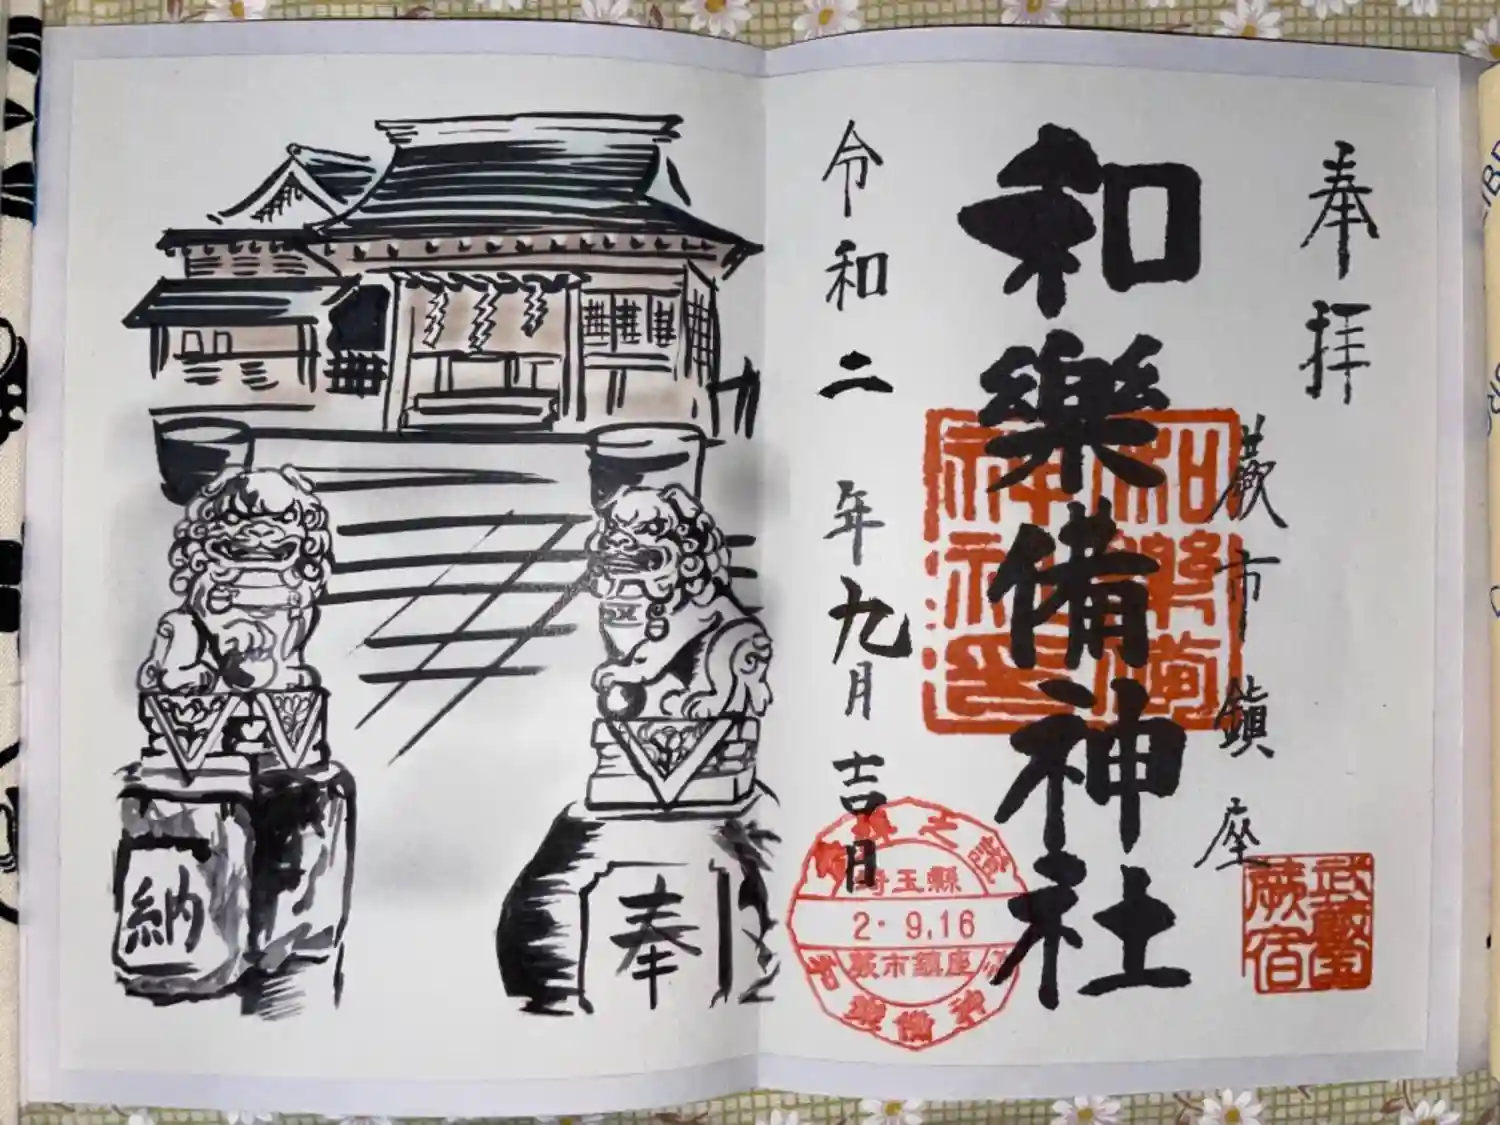 奉拝
蕨市鎮座
和樂備神社
令和二年九月吉日
和樂備
神社印
武藏国
蕨宿
埼玉縣
2.9.16
蕨市鎮座
和樂備神
奉
納